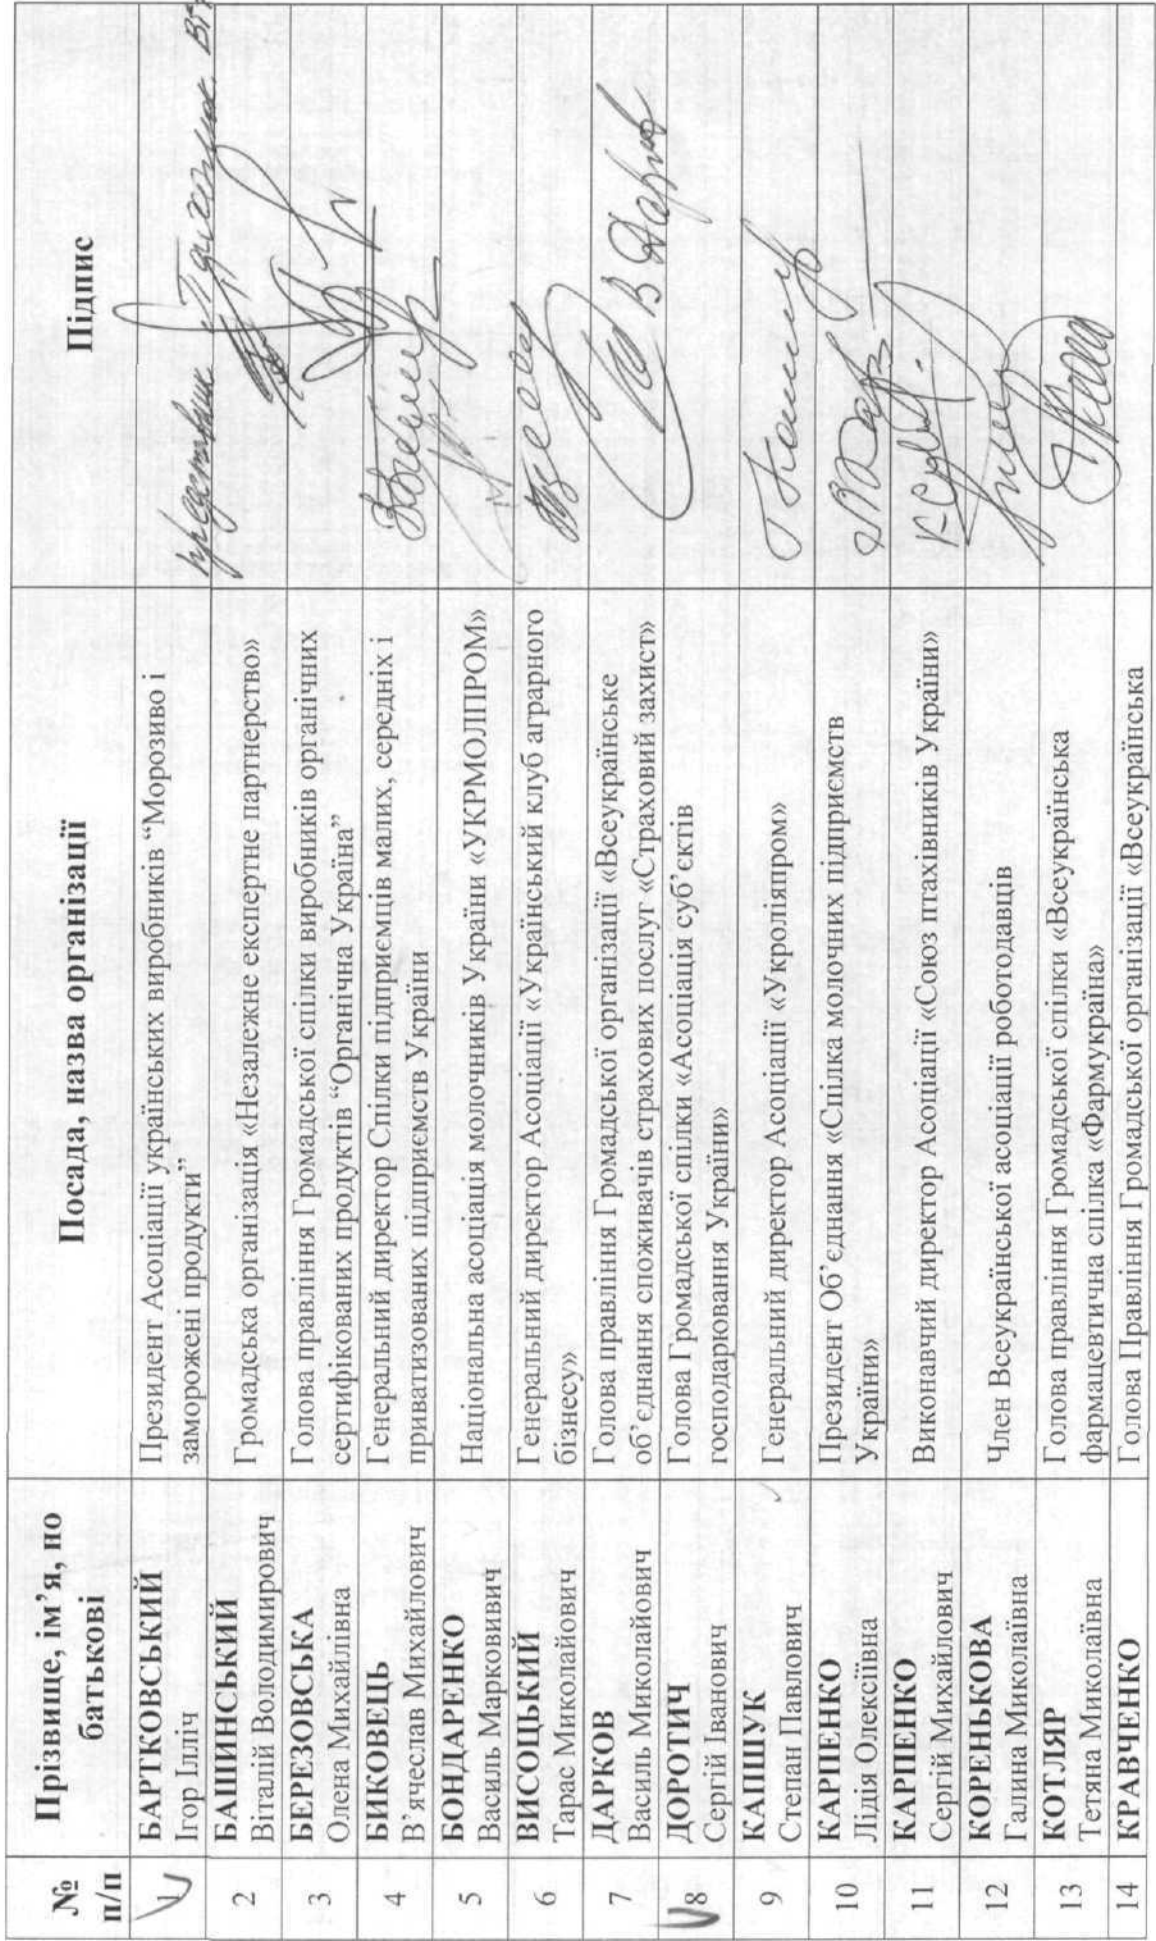 № п/п
Прізвище, ім’я, по батькові
Посада, назва організації
Підпис
1
БАРТКОВСЬКИЙ
Ігор Ілліч
Президент Асоціації українських виробників “Морозиво і
заморожені продукти”
2
БАШИНСЬКИЙ
Віталій Володимирович
Громадська організація «Незалежне експертне партнерство»
3
БЕРЕЗОВСЬКА
Олена Михайлівна
Голова правління Громадської спілки виробників органічних
сертифікованих продуктів “Органічна Україна”
4
БИКОВЕЦЬ
В’ячеслав Михайлович
Генеральний директор Спілки підприємців малих, середніх і
приватизованих підприємств України
5
БОНДАРЕНКО
Василь Марковивич
Національна асоціація молочників України «УКРМОЛПРОМ»
6
ВИСОЦЬКИЙ
Тарас Миколайович
Генеральний директор Асоціації «Український клуб аграрного
бізнесу»
7
ДАРКОВ
Василь Миколайович
Голова правління Громадської організації «Всеукраїнське
об’єднання споживачів страхових послуг «Страховий захист»
В Дарков
8
ДОРОТИЧ
Сергій Іванович
Голова Громадської спілки «Асоціація суб’єктів
господарювання України»
9
КАПШУК
Степан Павлович
Генеральний директор Асоціації «Укроліяпром»
10
КАРПЕНКО
Лідія Олексіївна
Президент Об’єднання «Спілка молочних підприємств
України»
11
КАРПЕНКО
Сергій Михайлович
Виконавчий директор Асоціації «Союз птахівників України»
12
КОРЕНЬКОВА
Галина Миколаївна
Член Всеукраїнської асоціації роботодавців
13
КОТЛЯР
Тетяна Миколаївна
Голова правління Громадської спілки «Всеукраїнська
фармацевтична спілка «Фармукраїна»
14
КРАВЧЕНКО
Голова Правління Громадської організації «Всеукраїнська